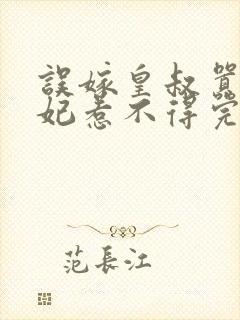 誤嫁皇叔器
妃惹不得完
范長江